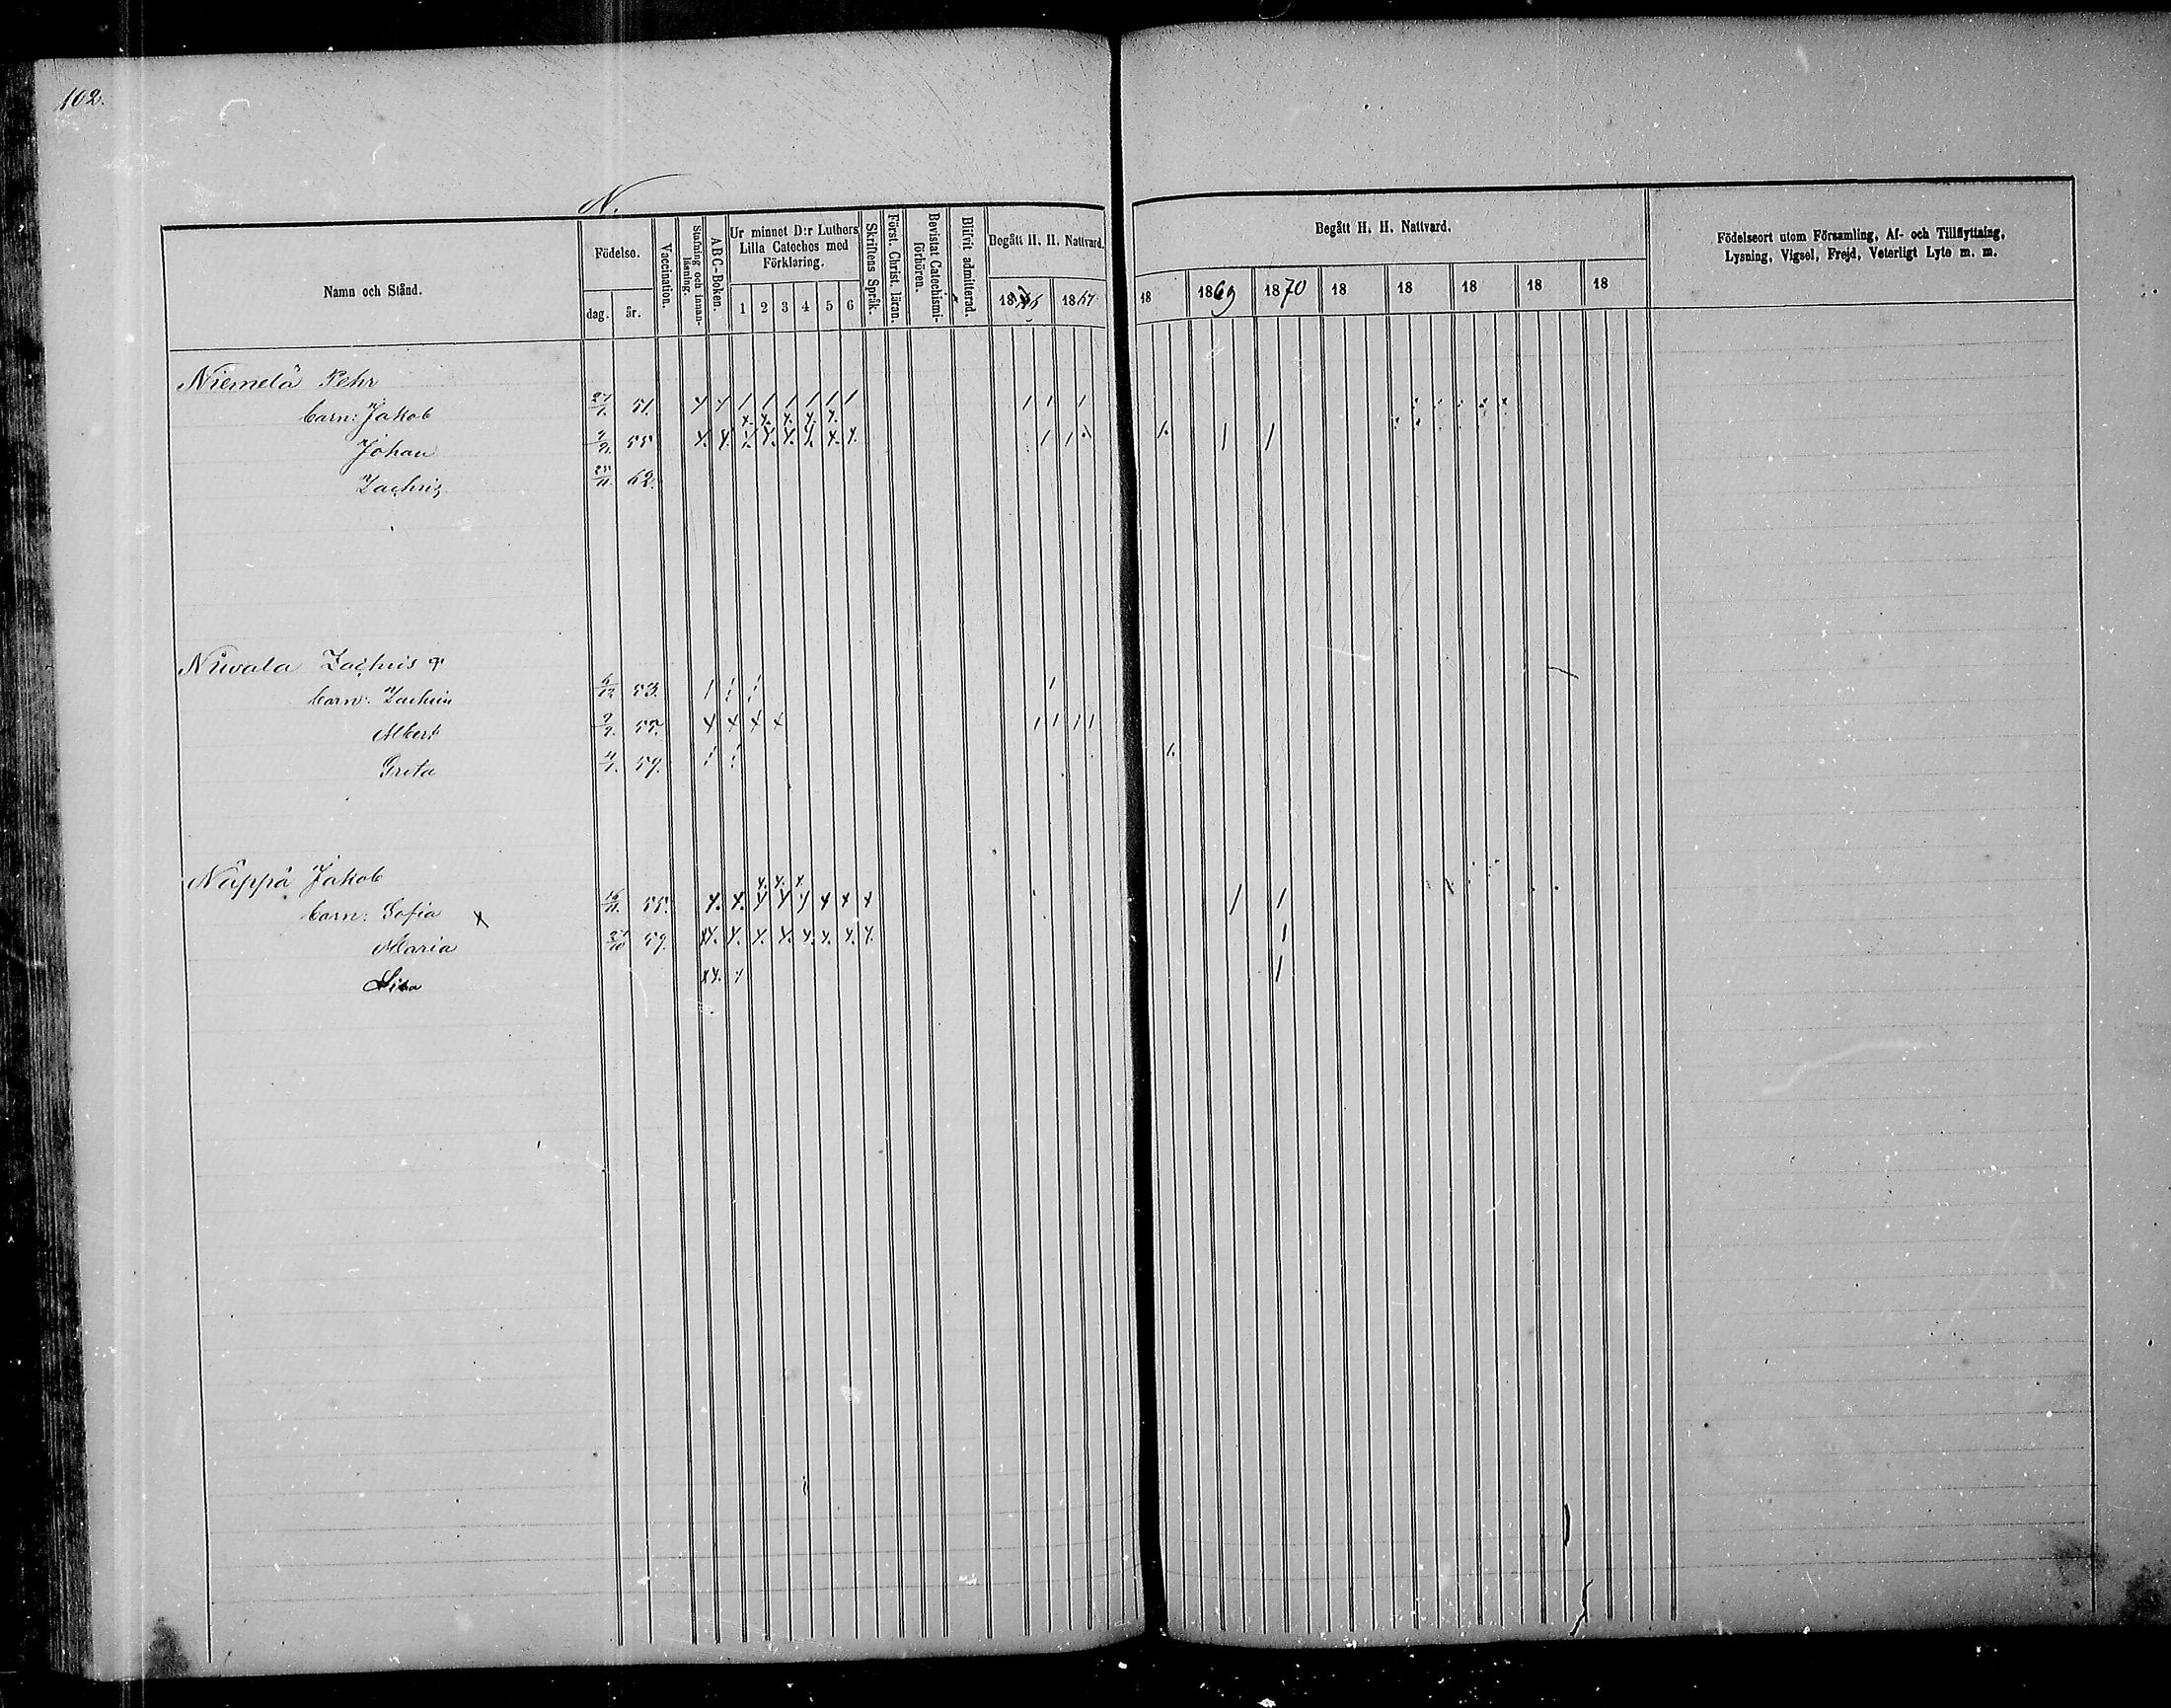 102.
N.
Namn och Stånd. Födelse. dag. år. Vaccination. Stafning och innanläsning. ABC-Boken. Ur minnet D:r Luthers Lilla Cateches med Förklaring. 1 2 3 4 5 6 Skriftens Språk. Först. Christ. läran. Bevistat Catechismiförhören. Blifvit admitterad. Begått H. H. Nattvard. 1866 1867
Begått H. H. Nattvard. 18 1869 1870 18 18 18 18 18
Födelseort utom Församling, Af- och Tillflyttning,
Lysning, Vigsel, Frejd, Veterligt Lyte m. m.
Niemelä Pehr
barn: Jakob 27/1. 51.
Johan 55
Zachris 25/11. 62.
Niwala Zachris
barn: Zachris 6/12 53.
Albert 55.
Greta 59.
Näppä Jakob
barn: Sofia x 16/11. 55.
Maria 27/10 59.
Lisa